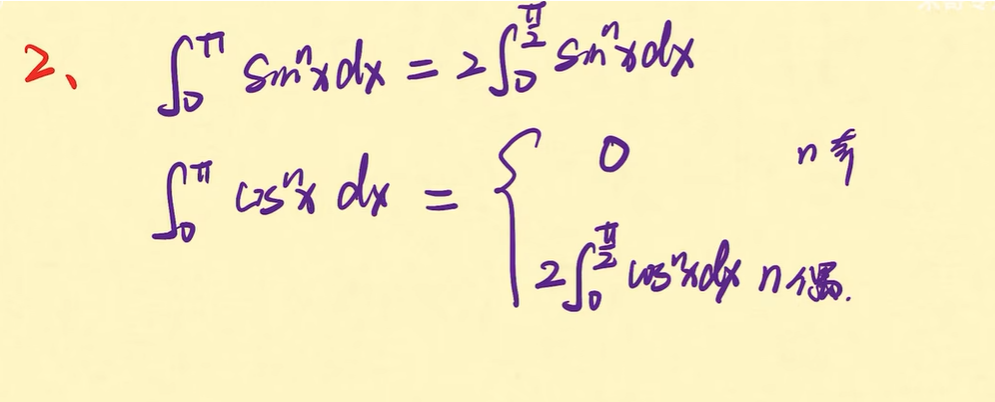 2、 ∫₀^π sinⁿx dx = 2∫₀^{π/2} sinⁿx dx
∫₀^π cosⁿx dx = { 0 n奇
2∫₀^{π/2} cosⁿx dx n偶.